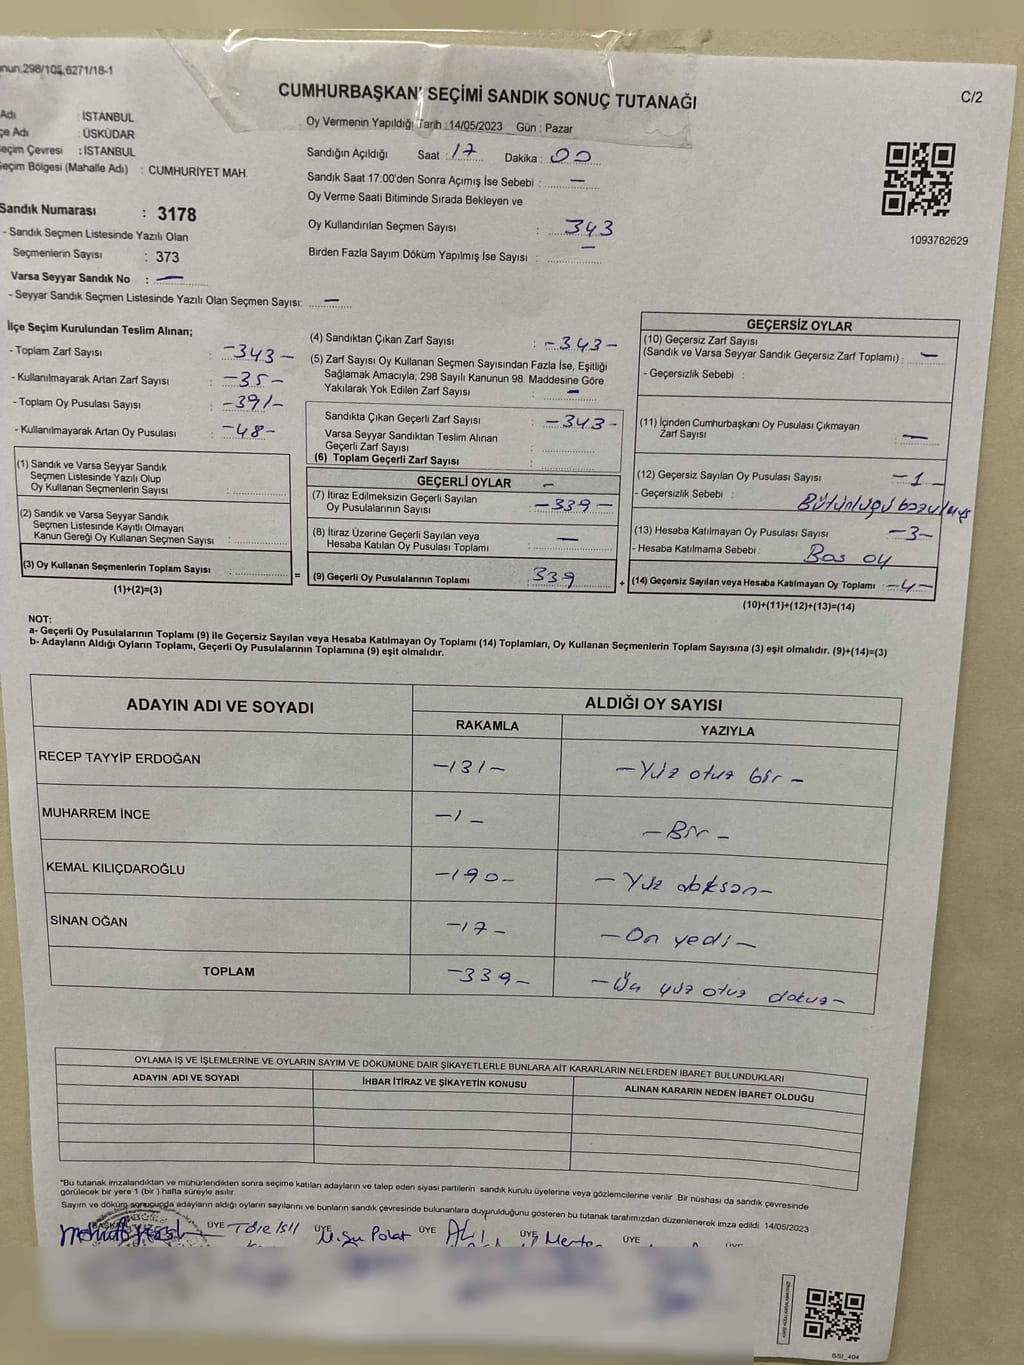 nun,298/105,6271/18-1
C/2
CUMHURBAŞKANI SEÇİMİ SANDIK SONUÇ TUTANAĞI
Adı : İSTANBUL
çe Adı : ÜSKÜDAR
eçim Çevresi : İSTANBUL
eçim Bölgesi (Mahalle Adı) : CUMHURİYET MAH.
Oy Vermenin Yapıldığı Tarih :14/05/2023 Gün : Pazar
Sandığın Açıldığı Saat : 17 Dakika : 00
Sandık Saat 17:00'den Sonra Açımış İse Sebebi : —
Oy Verme Saati Bitiminde Sırada Bekleyen ve
Oy Kullandırılan Seçmen Sayısı : 343
Birden Fazla Sayım Döküm Yapılmış İse Sayısı : —
1093782629
Sandık Numarası : 3178
- Sandık Seçmen Listesinde Yazılı Olan
Seçmenlerin Sayısı : 373
Varsa Seyyar Sandık No : —
- Seyyar Sandık Seçmen Listesinde Yazılı Olan Seçmen Sayısı: —
İlçe Seçim Kurulundan Teslim Alınan;
- Toplam Zarf Sayısı : -343-
- Kullanılmayarak Artan Zarf Sayısı : -35-
- Toplam Oy Pusulası Sayısı : -391-
- Kullanılmayarak Artan Oy Pusulası : -48-
(1) Sandık ve Varsa Seyyar Sandık
Seçmen Listesinde Yazılı Olup
Oy Kullanan Seçmenlerin Sayısı :
(2) Sandık ve Varsa Seyyar Sandık
Seçmen Listesinde Kayıtlı Olmayan
Kanun Gereği Oy Kullanan Seçmen Sayısı :
(3) Oy Kullanan Seçmenlerin Toplam Sayısı :
(1)+(2)=(3)
(4) Sandıktan Çıkan Zarf Sayısı : -343-
(5) Zarf Sayısı Oy Kullanan Seçmen Sayısından Fazla İse, Eşitliği
Sağlamak Amacıyla; 298 Sayılı Kanunun 98. Maddesine Göre
Yakılarak Yok Edilen Zarf Sayısı : —
Sandıkta Çıkan Geçerli Zarf Sayısı : -343-
Varsa Seyyar Sandıktan Teslim Alınan
Geçerli Zarf Sayısı :
(6) Toplam Geçerli Zarf Sayısı :
GEÇERLİ OYLAR
(7) İtiraz Edilmeksizin Geçerli Sayılan
Oy Pusulalarının Sayısı : -339-
(8) İtiraz Üzerine Geçerli Sayılan veya
Hesaba Katılan Oy Pusulası Toplamı : —
= (9) Geçerli Oy Pusulalarının Toplamı : 339 +
GEÇERSİZ OYLAR
(10) Geçersiz Zarf Sayısı
(Sandık ve Varsa Seyyar Sandık Geçersiz Zarf Toplamı) : —
- Geçersizlik Sebebi :
(11) İçinden Cumhurbaşkanı Oy Pusulası Çıkmayan
Zarf Sayısı : —
(12) Geçersiz Sayılan Oy Pusulası Sayısı : -1-
- Geçersizlik Sebebi : Bütünlüğü bozulmuş
(13) Hesaba Katılmayan Oy Pusulası Sayısı : -3-
- Hesaba Katılmama Sebebi : Bos oy
(14) Geçersiz Sayılan veya Hesaba Katılmayan Oy Toplamı : -4-
(10)+(11)+(12)+(13)=(14)
NOT:
a- Geçerli Oy Pusulalarının Toplamı (9) ile Geçersiz Sayılan veya Hesaba Katılmayan Oy Toplamı (14) Toplamları, Oy Kullanan Seçmenlerin Toplam Sayısına (3) eşit olmalıdır. (9)+(14)=(3)
b- Adayların Aldığı Oyların Toplamı, Geçerli Oy Pusulalarının Toplamına (9) eşit olmalıdır.
ADAYIN ADI VE SOYADI ALDIĞI OY SAYISI
RAKAMLA YAZIYLA
RECEP TAYYİP ERDOĞAN -131- -Yüz otuz bir-
MUHARREM İNCE -1- -Bir-
KEMAL KILIÇDAROĞLU -190- -Yüz doksan-
SİNAN OĞAN -17- -On yedi-
TOPLAM -339- -Üç yüz otuz dokuz-
OYLAMA İŞ VE İŞLEMLERİNE VE OYLARIN SAYIM VE DÖKÜMÜNE DAİR ŞİKAYETLERLE BUNLARA AİT KARARLARIN NELERDEN İBARET BULUNDUKLARI
ADAYIN ADI VE SOYADI İHBAR İTİRAZ VE ŞİKAYETİN KONUSU ALINAN KARARIN NEDEN İBARET OLDUĞU
*Bu tutanak imzalandıktan ve mühürlendikten sonra seçime katılan adayların ve talep eden siyasi partilerin sandık kurulu üyelerine veya gözlemcilerine verilir Bir nüshası da sandık çevresinde
görülecek bir yere 1 (bir ) hafta süreyle asılır.
Sayım ve döküm sonucunda adayların aldığı oyların sayılarını ve bunların sandık çevresinde bulunanlara duyurulduğunu gösteren bu tutanak tarafımızdan düzenlenerek imza edildi. 14/05/2023
BAŞKAN ÜYE ÜYE Polat ÜYE ÜYE ÜYE
SSI_404